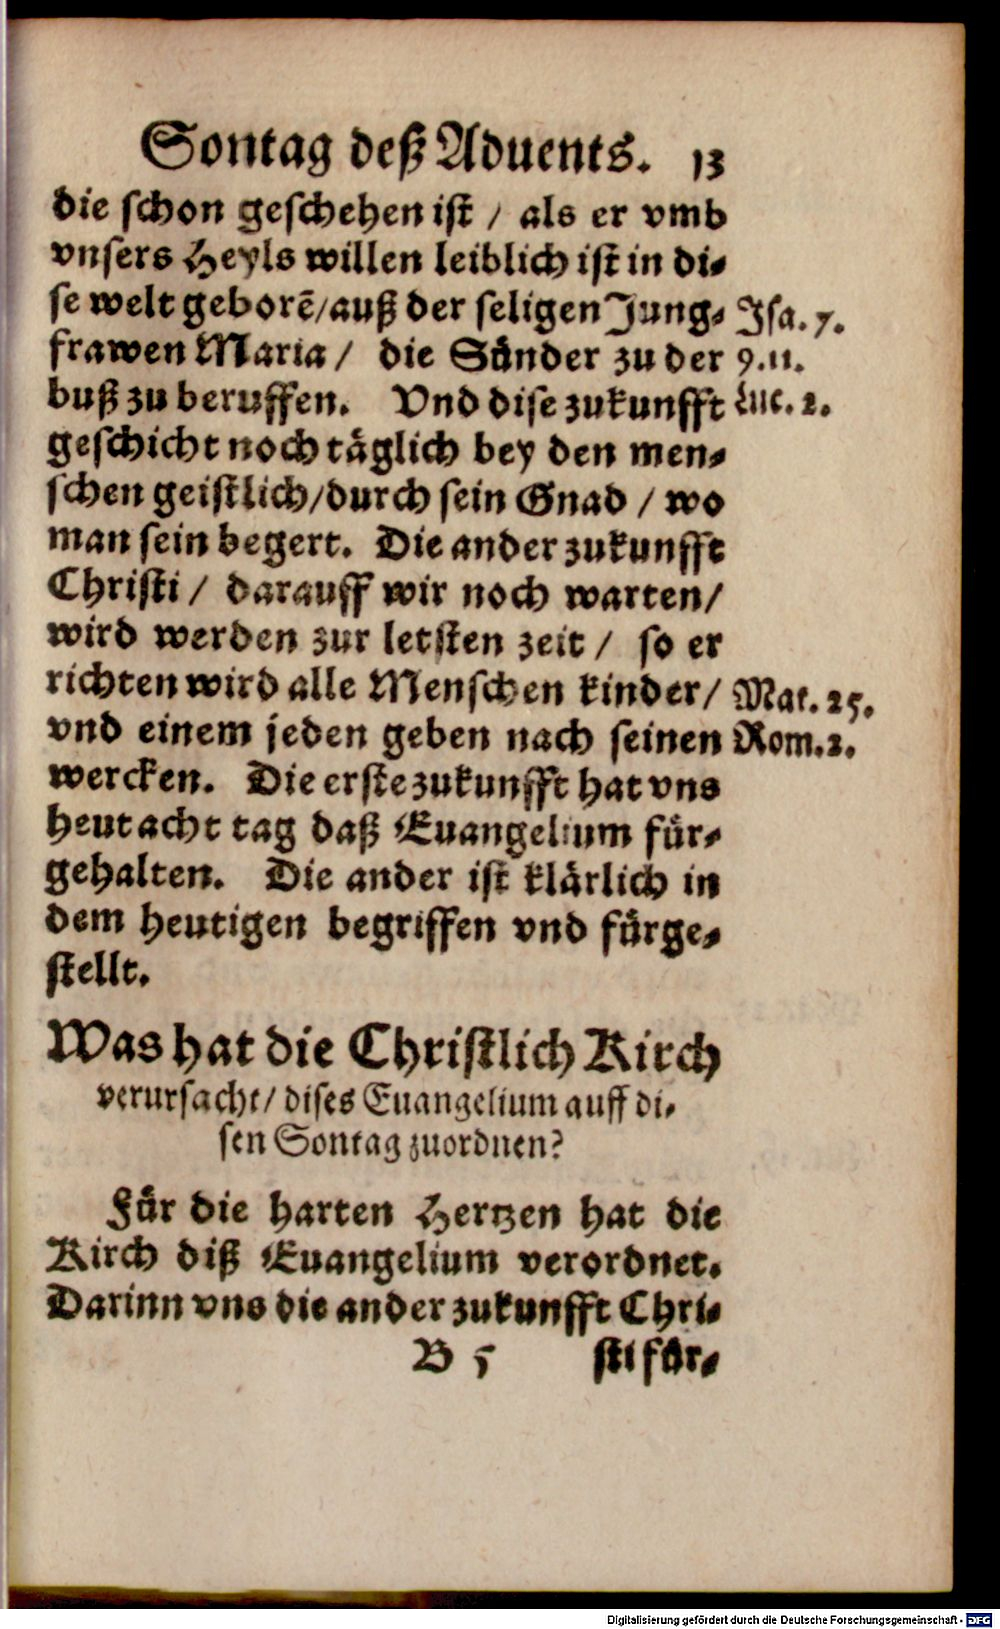 Sontag deß Aduents. 13
die schon geschehen ist / als er vmb
vnsers Heyls willen leiblich ist in di⸗
se welt geborē/auß der seligen Jung⸗ Jsa. 7.
frawen Maria / die Sünder zu der 9.11.
buß zu beruffen. Vnd dise zukunfft Luc. 2.
geschicht noch täglich bey den men⸗
schen geistlich/durch sein Gnad / wo
man sein begert. Die ander zukunfft
Christi / darauff wir noch warten/
wird werden zur letsten zeit / so er
richten wird alle Menschen kinder/ Mat. 25.
vnd einem jeden geben nach seinen Rom.2.
wercken. Die erste zukunfft hat vns
heut acht tag daß Euangelium für⸗
gehalten. Die ander ist klärlich in
dem heutigen begriffen vnd fürge⸗
stellt.
Was hat die Christlich Kirch
verursacht/ dises Euangelium auff di⸗
sen Sontag zuordnen?
Für die harten Hertzen hat die
Kirch diß Euangelium verordnet.
Darinn vns die ander zukunfft Chri⸗
B 5 sti für⸗
Digitalisierung gefördert durch die Deutsche Forschungsgemeinschaft - DFG